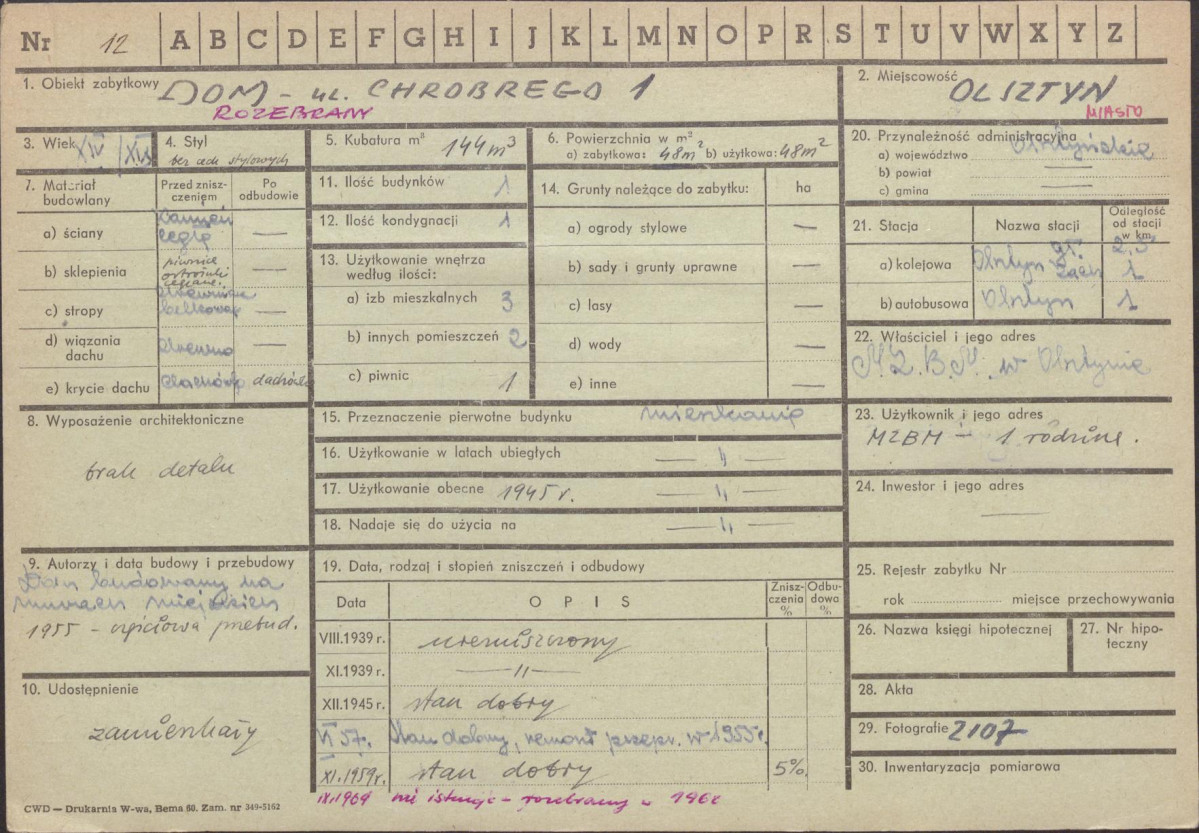 Nr 12 A B C D E F G H I J K L M N O P R S T U V W X Y Z
1. Obiekt zabytkowy DOM - ul. CHROBREGO 1
ROZEBRANY
2. Miejscowość OLSZTYN
MIASTO
3. Wiek XIV / XIX
4. Styl
bez cech stylowych
5. Kubatura m³ 144 m³
6. Powierzchnia w m²
a) zabytkowa: 48 m² b) użytkowa: 48 m²
20. Przynależność administracyjna
a) województwo Olsztyńskie
b) powiat —
c) gmina —
7. Materiał budowlany
Przed zniszczeniem
Po odbudowie
a) ściany kamień cegła —
b) sklepienia piwnice ceglane —
c) stropy drewniane belkowe —
d) wiązania dachu drewno —
e) krycie dachu dachówka dachówka
11. Ilość budynków 1
12. Ilość kondygnacji 1
13. Użytkowanie wnętrza według ilości:
a) izb mieszkalnych 3
b) innych pomieszczeń 2
c) piwnic 1
14. Grunty należące do zabytku: ha
a) ogrody stylowe —
b) sady i grunty uprawne —
c) lasy —
d) wody —
e) inne —
21. Stacja Nazwa stacji Odległość od stacji w km
a) kolejowa Olsztyn gł. 2,5
Zach. 1
b) autobusowa Olsztyn 1
22. Właściciel i jego adres
M.Z.B.M. w Olsztynie
8. Wyposażenie architektoniczne
brak detalu
15. Przeznaczenie pierwotne budynku mieszkanie
16. Użytkowanie w latach ubiegłych — „ —
17. Użytkowanie obecne 1945 r. — „ —
18. Nadaje się do użycia na — „ —
23. Użytkownik i jego adres
MZBM - 1 rodzina.
24. Inwestor i jego adres
—
9. Autorzy i data budowy i przebudowy
Dom budowany na
murach miejskich
1955 - częściowa przebud.
10. Udostępnienie
zamieszkały
19. Data, rodzaj i stopień zniszczeń i odbudowy
Data OPIS Zniszczenia % Odbudowa %
VIII.1939 r. niezniszczony
XI.1939 r. — „ —
XII.1945 r. stan dobry
VI 57. Stan dobry, remont przepr. w 1955 r.
XI.1959 r. stan dobry 5%
IX.1969 nie istnieje - rozebrany w
25. Rejestr zabytku Nr
rok miejsce przechowywania
26. Nazwa księgi hipotecznej
27. Nr hipoteczny
28. Akta
29. Fotografie 2107
30. Inwentaryzacja pomiarowa
CWD — Drukarnia W-wa, Bema 60. Zam. nr 349-5162